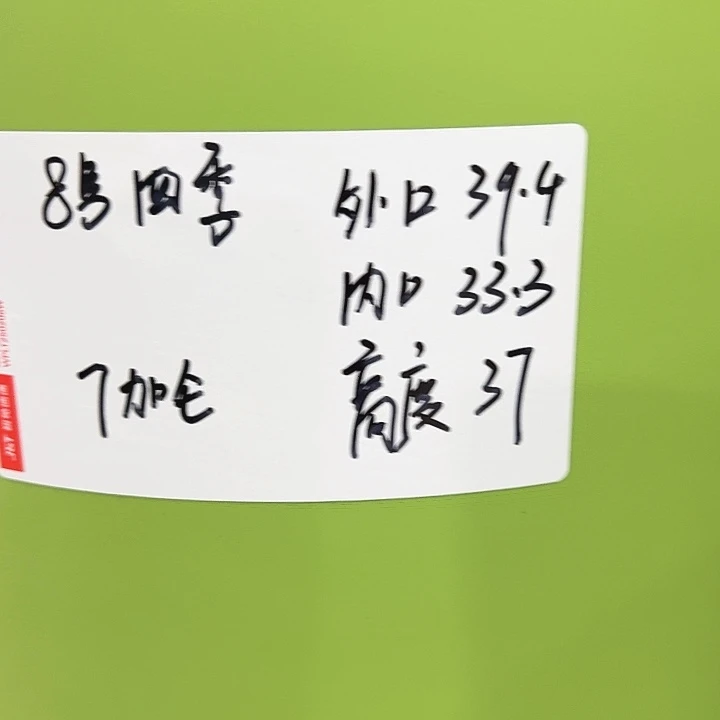 8号四季 外口 39.4
内口 33.3
7加仑 高度 37